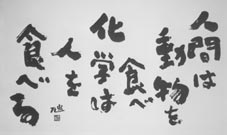 人間は
動物を
食べ
化学は
人を
食べる